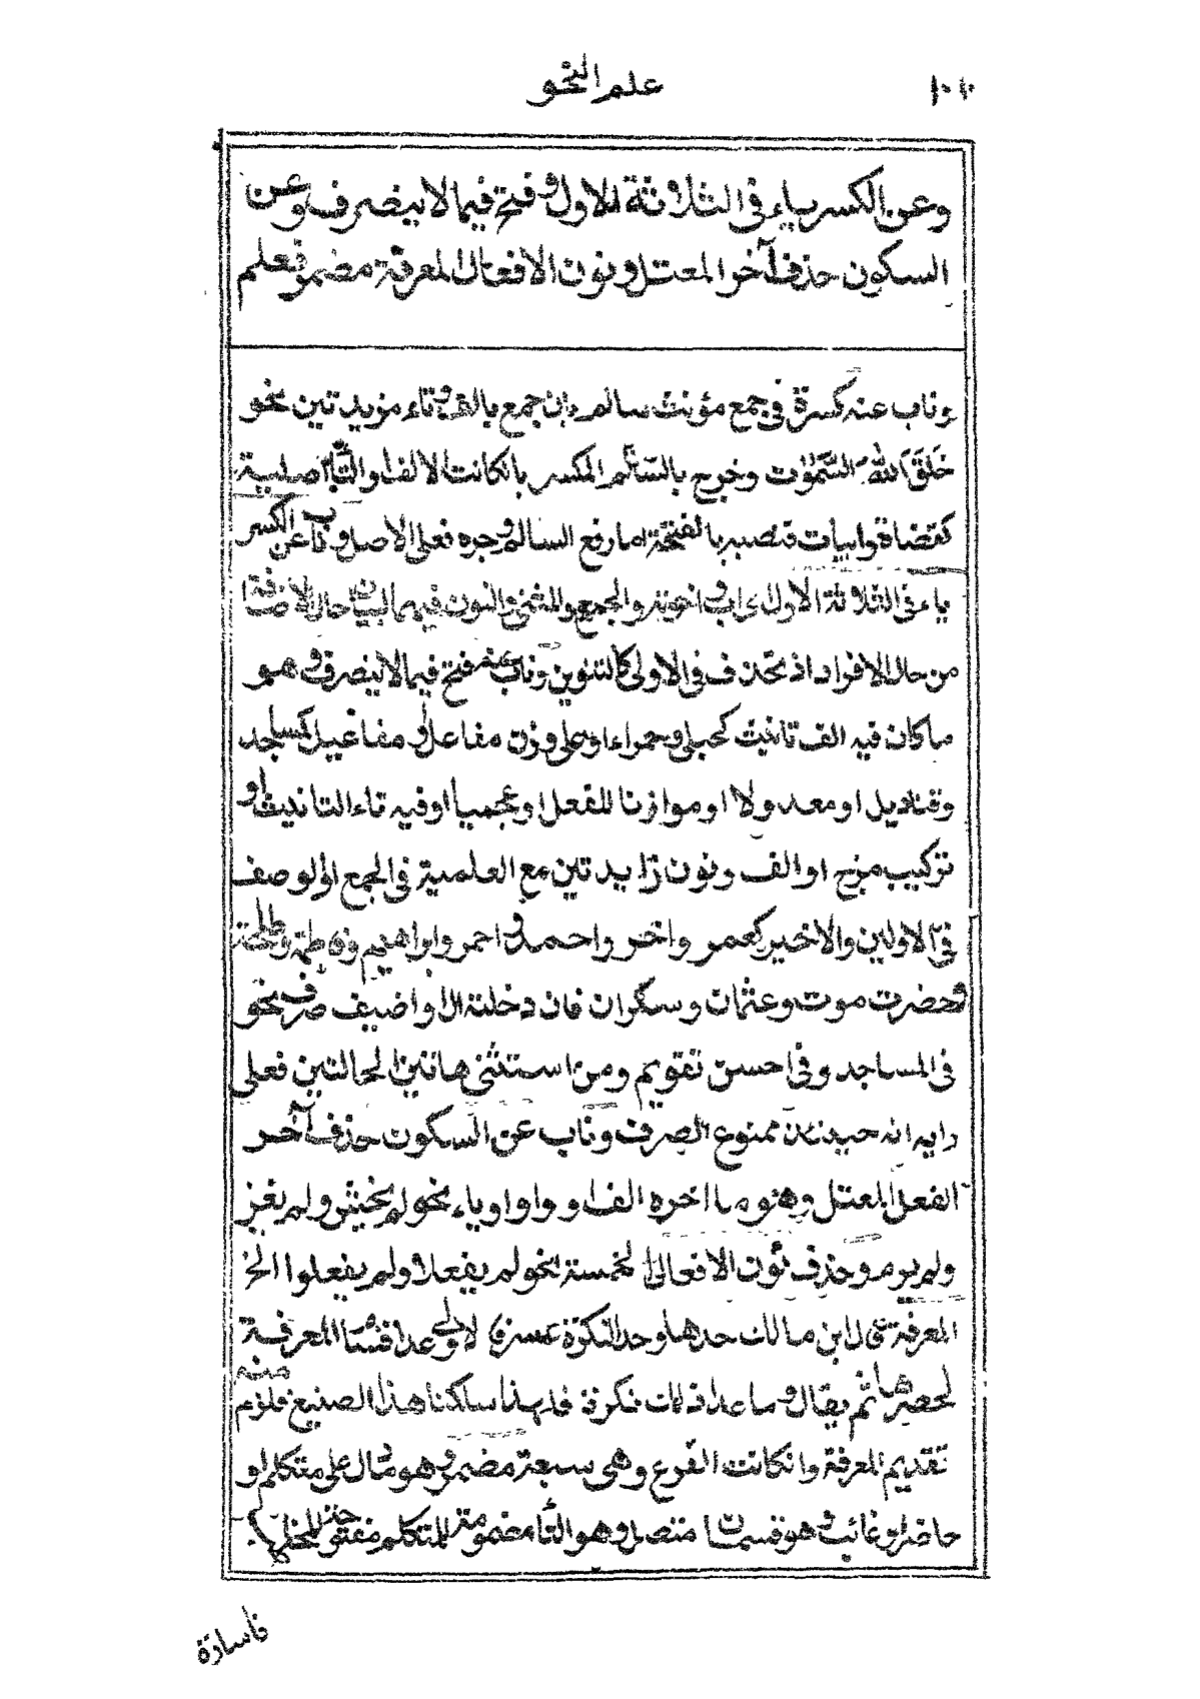 علم النحو
وعن الكسر ياء في الثلاثة الاول وفتح فيما لا ينصرف وعن
السكون حذف آخر المعتل ونون الافعال المعرفة مضمر فعلم
وناب عنه كسرة في جمع مؤنث سالم بان جمع بالف وتاء مزيدتين نحو
خَلَقَ اللهُ السَّمٰوٰت وخرج بالسالم المكسر بان كانت الالف او التاء اصلية
كقضاة وابيات فنصبه بالفتحة اما رفع السالم وجره فعلى الاصل وناب عن الكسر
ياء في الثلاثة الاول اى اب واخوته والجمع والمثنى والنون فيهما لبيان حال الاضافة
من حال الافراد اذ تحذف في الاولى كالتنوين وناب عنه فتح فيما لا ينصرف وهو
ما كان فيه الف تانيث كحبلى وحمراء او على وزن مفاعل او مفاعيل كمساجد
وقناديل او معدولا او موازنا للفعل او عجميا او فيه تاء التانيث او
تركيب مزج او الف ونون زايدتين مع العلمية في الجمع او الوصف
في الاولين والاخير كعمر واخر واحمد واحمر وابراهيم وفاطمة وطلحة
وحضرت موت وعثمان وسكران فان دخلته ال او اضيف صرف نحو
في المساجد وفي احسن تقويم ومن استثنى هاتين الحالتين فعلى
رايه انه حينئذ ممنوع الصرف وناب عن السكون حذف آخر
الفعل المعتل وهو ما اخره الف او واو او ياء نحو لم يخش ولم يغز
ولم يرم وحذف نون الافعال الخمسة نحو لم يفعلا ولم يفعلوا الخ
المعرفة قال ابن مالك حدها وحد النكرة عسر فالاولى عد اقسام المعرفة
لحصرها ثم يقال وما عدا ذلك نكرة فلهذا سلكنا هذا الصنيع فلزم منه
تقديم المعرفة وان كانت الفرع وهي سبعة مضمر وهو ما دل على متكلم او
حاضر او غائب وهو قسمان متصل وهو التاء مضمومة للمتكلم مفتوحة للمخاطب